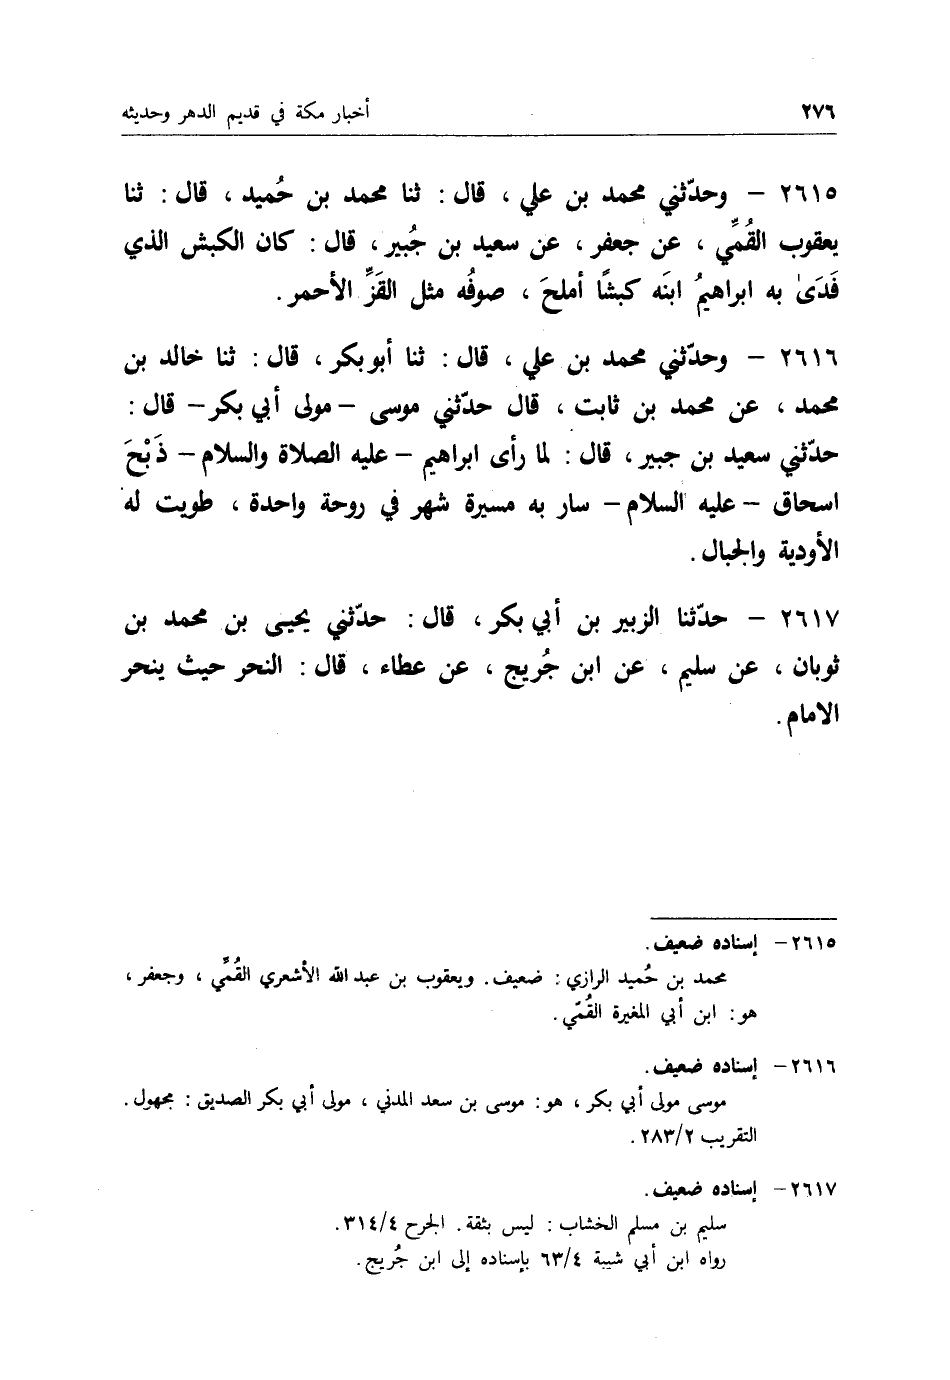 ٢٧٦ أخبار مكة في قديم الدهر وحديثه
٢٦١٥ – وحدّثني محمد بن علي ، قال : ثنا محمد بن حُميد ، قال : ثنا
يعقوب القُمِّي ، عن جعفر ، عن سعيد بن جُبير ، قال : كان الكبش الذي
فَدَىٰ به ابراهيمُ ابنَه كبشًا أملحَ ، صوفُه مثل القَزِّ الأحمر .
٢٦١٦ – وحدّثني محمد بن علي ، قال : ثنا أبو بكر ، قال : ثنا خالد بن
محمد ، عن محمد بن ثابت ، قال حدّثني موسى – مولى أبي بكر – قال :
حدّثني سعيد بن جبير ، قال : لما رأى ابراهيم – عليه الصلاة والسلام – ذَبْحَ
اسحاق – عليه السلام – سار به مسيرة شهر في روحة واحدة ، طويت له
الأودية والجبال .
٢٦١٧ – حدّثنا الزبير بن أبي بكر ، قال : حدّثني يحيى بن محمد بن
ثوبان ، عن سليم ، عن ابن جُريج ، عن عطاء ، قال : النحر حيث ينحر
الامام .
٢٦١٥ – إسناده ضعيف .
محمد بن حُميد الرازي : ضعيف . ويعقوب بن عبد الله الأشعري القُمِّي ، وجعفر ،
هو : ابن أبي المغيرة القُمّي .
٢٦١٦ – إسناده ضعيف .
موسى مولى أبي بكر ، هو : موسى بن سعد المدني ، مولى أبي بكر الصديق : مجهول .
التقريب ٢٨٣/٢ .
٢٦١٧ – إسناده ضعيف .
سليم بن مسلم الخشاب : ليس بثقة . الجرح ٣١٤/٤ .
رواه ابن أبي شيبة ٦٣/٤ بإسناده إلى ابن جُريج .